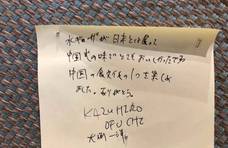 水ギョーザが日本とは違って
中国の味でとてもおいしかったです
中国の食文化の1つを楽しめ
ました。ありがとう。
KAZUHIRO
OFUCHI
大渕 一